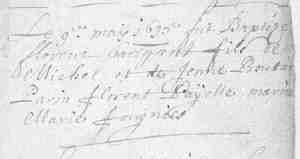 Le 9me may 1695 fut Baptisé
florent fils de
Michel et de Jenne
Parin florent Payelle marine
Marie